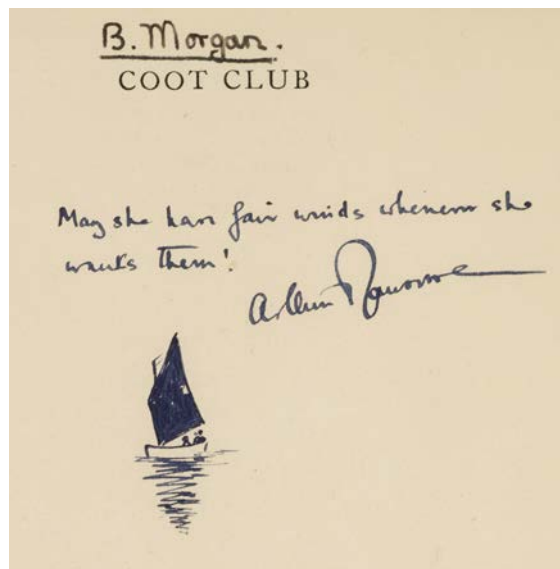 B. Morgan.
COOT CLUB
May she have fair winds whenever she
wants them!
Arthur Ransome